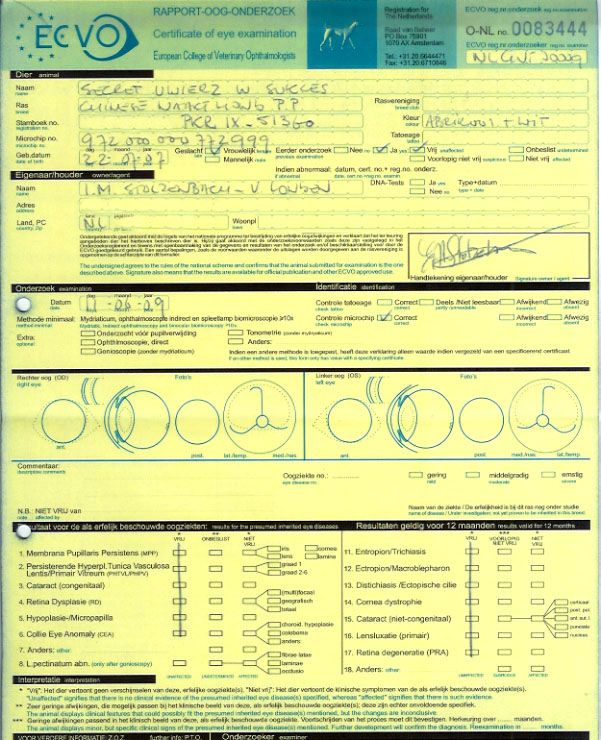 ECVO
RAPPORT-OOG-ONDERZOEK
Certificate of eye examination
European College of Veterinary Ophthalmologists
Registration for
The Netherlands
Raad van Beheer
PO Box 75901
1070 AX Amsterdam
Tel.: +31.20.6644471
Fax: +31.20.6710846
ECVO reg.nr.onderzoek
O-NL no. 0083444
ECVO reg.nr.onderzoeker
Dier animal
Naam SECRET UWIERZ W SUKCES
name
Ras CHINESE NAAKTHOND P.P.
breed
Rasvereniging
breed club
Stamboek no. PKR IX-51360
registration no.
Kleur ABRIKOOS + WIT
colour
Microchip no. 972 000 000 772 999
microchip no.
Tatoeage
tattoo
Geb.datum dag maand jaar 22-07-07
date of birth
Geslacht Vrouwelijk female
Mannelijk male
Eerder onderzoek Nee no Ja yes Vrij unaffected Onbeslist undetermined
Voorlopig niet vrij suspicious Niet vrij affected
Indien abnormaal: datum, cert. no.+ reg.no. onderz.
if abnormal date, cert. no.+reg.no. examin.
Eigenaar/houder owner/agent
Naam I.M. STOLZENBACH - V LONDEN
name
DNA-Tests Ja yes Type+datum
Nee no type + date
Adres
address
Land, PC NL Woonpl
country, zip
The undersigned agrees to the rules of the national scheme and confirms that the animal submitted for examination is the one
described above. Signature also means that the results are available for official publication and other ECVO approved use.
Handtekening eigenaar/houder signature owner / agent
Onderzoek examination
Identificatie identification
Datum dag maand jaar 11-06-09
date
Controle tatoeage Correct Deels /Niet leesbaar Afwijkend Afwezig
check tattoo correct partly /unreadable incorrect absent
Methode minimaal: Mydriaticum, ophthalmoscopie indirect en spleetlamp biomicroscopie ≥10x
method minimal: Mydriatic, indirect ophthalmoscopy and binocular biomicroscopy ≥10x
Controle microchip Correct Afwijkend Afwezig
check microchip correct incorrect absent
Extra: Onderzocht vóór pupilverwijding Tonometrie (zonder mydriaticum)
optional: Ophthalmoscopie, direct Anders:
Gonioscopie (zonder mydriaticum)
Indien een andere methode is toegepast, heeft deze verklaring alleen waarde indien vergezeld van een specificerend certificaat
If an other method is used, this form only has value with a specifying certificate
Rechter oog (OD) Foto's
right eye
Linker oog (OS) Foto's
left eye
ant. post. lat./temp. med./nas.
ant. post. med./nas. lat./temp
Commentaar:
descriptive comments
Oogziekte no.: gering middelgradig ernstig
eye disease no. mild moderate severe
N.B.: NIET VRIJ van
note affected by
Naam van de ziekte / De erfelijkheid is bij dit ras nog onder studie
name of disease / Under investigation; not yet proven to be inherited in this breed.
Resultaat voor de als erfelijk beschouwde oogziekten: results for the presumed inherited eye diseases
Resultaten geldig voor 12 maanden results valid for 12 months
VRIJ ONBESLIST NIET VRIJ
VRIJ VOORLOPIG NIET VRIJ NIET VRIJ
1. Membrana Pupillaris Persistens (MPP) iris cornea
lens lamina
2. Persisterende Hyperpl.Tunica Vasculosa
Lentis/Primair Vitreum (PHTVL/PHPV) graad 1
graad 2-6
3. Cataract (congenitaal)
4. Retina Dysplasie (RD) (multi)focaal
geografisch
totaal
5. Hypoplasie-/Micropapilla
6. Collie Eye Anomaly (CEA) choroid. hypoplasie
coloboma
anders:
7. Anders: other:
8. L.pectinatum abn. (only after gonioscopy) fibrae latae
laminae
occlusio
UNAFFECTED UNDETERMINED AFFECTED
11. Entropion/Trichiasis
12. Ectropion/Macroblepharon
13. Distichiasis /Ectopische cilie
14. Cornea dystrofie
15. Cataract (niet-congenitaal) corticaal
post. pol.
ant. sut.
punctata
nucleus
16. Lensluxatie (primair)
17. Retina degeneratie (PRA)
18. Anders: other:
UNAFFECTED SUSPICIOUS AFFECTED
Interpretatie interpretation
* "Vrij": Het dier vertoont geen verschijnselen van deze, erfelijke oogziekte(s). "Niet vrij": Het dier vertoont de klinische symptomen van de als erfelijk beschouwde oogziekte(s).
"Unaffected" signifies that there is no clinical evidence of the presumed inherited eye disease(s) specified, whereas "affected" signifies that there is such evidence.
** Zeer geringe afwijkingen, die mogelijk passen bij het klinische beeld van deze, als erfelijk beschouwde, oogziekte(s); deze zijn echter onvoldoende specifiek.
The animal displays clinical features that could possibly fit the presumed inherited eye disease(s) mentioned, but the changes are inconclusive.
*** Geringe afwijkingen passend in het klinisch beeld van deze, als erfelijk beschouwde oogziekte(s). Voortschrijden van het proces moet dit bevestigen. Herkeuring over ....... maanden.
The animal displays minor, but specific clinical signs of the presumed inherited eye disease(s) mentioned. Further development will confirm the diagnosis. Reexamination in ....... months.
VOOR VERDERE INFORMATIE Z.O.Z. further info: P.T.O. Onderzoeker examiner